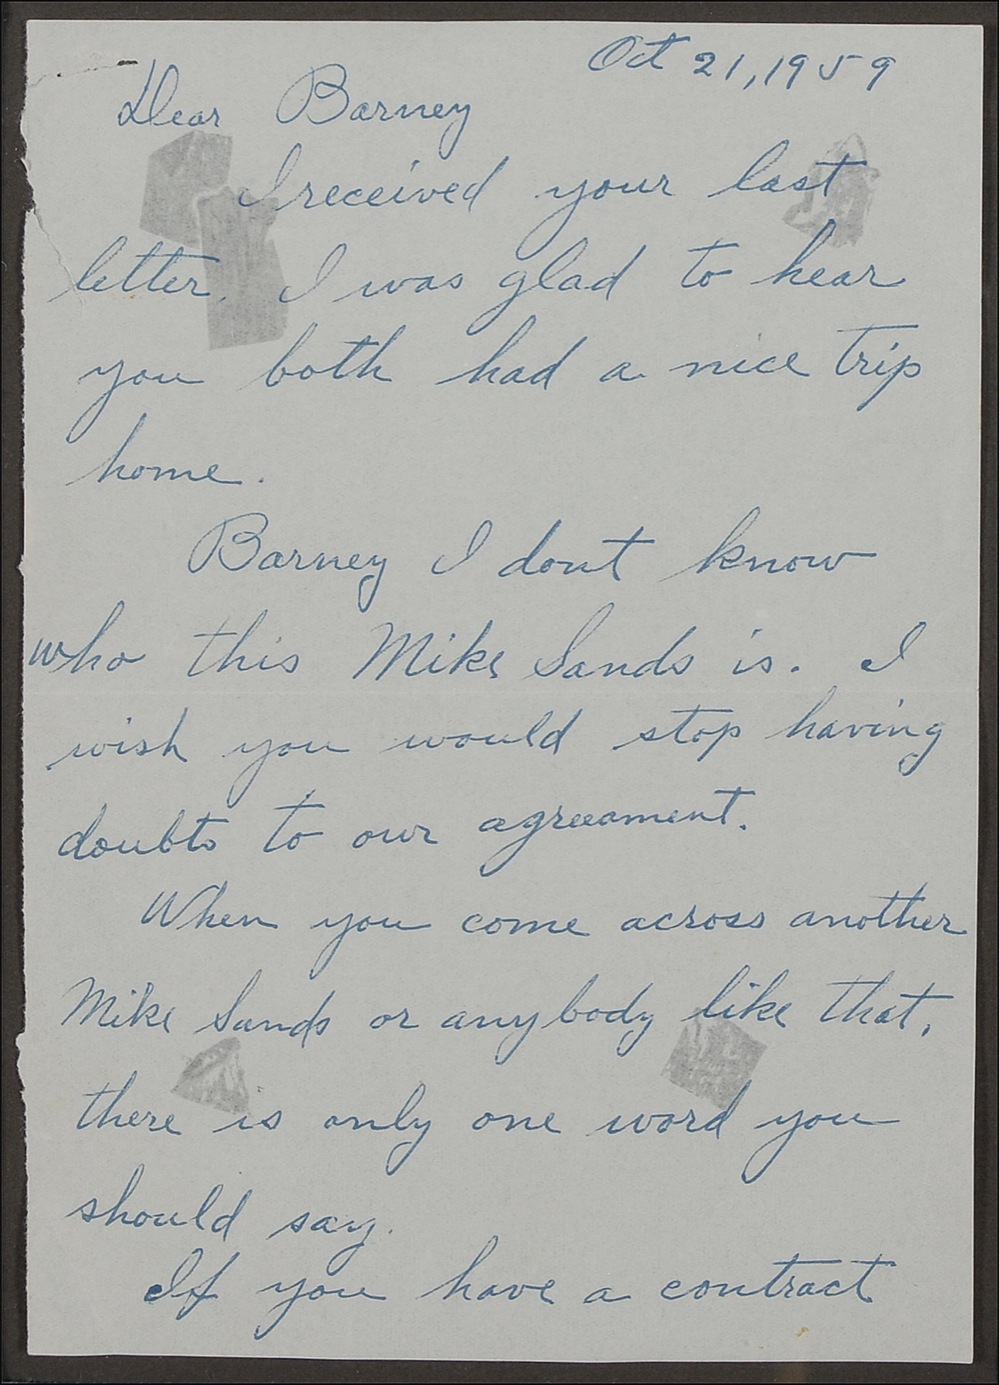 Oct 21, 1959
Dear Barney
I received your last
letter. I was glad to hear
you both had a nice trip
home.
Barney I dont know
who this Mike Sands is. I
wish you would stop having
doubts to our agreeament.
When you come across another
Mike Sands or anybody like that,
there is only one word you
should say.
If you have a contract